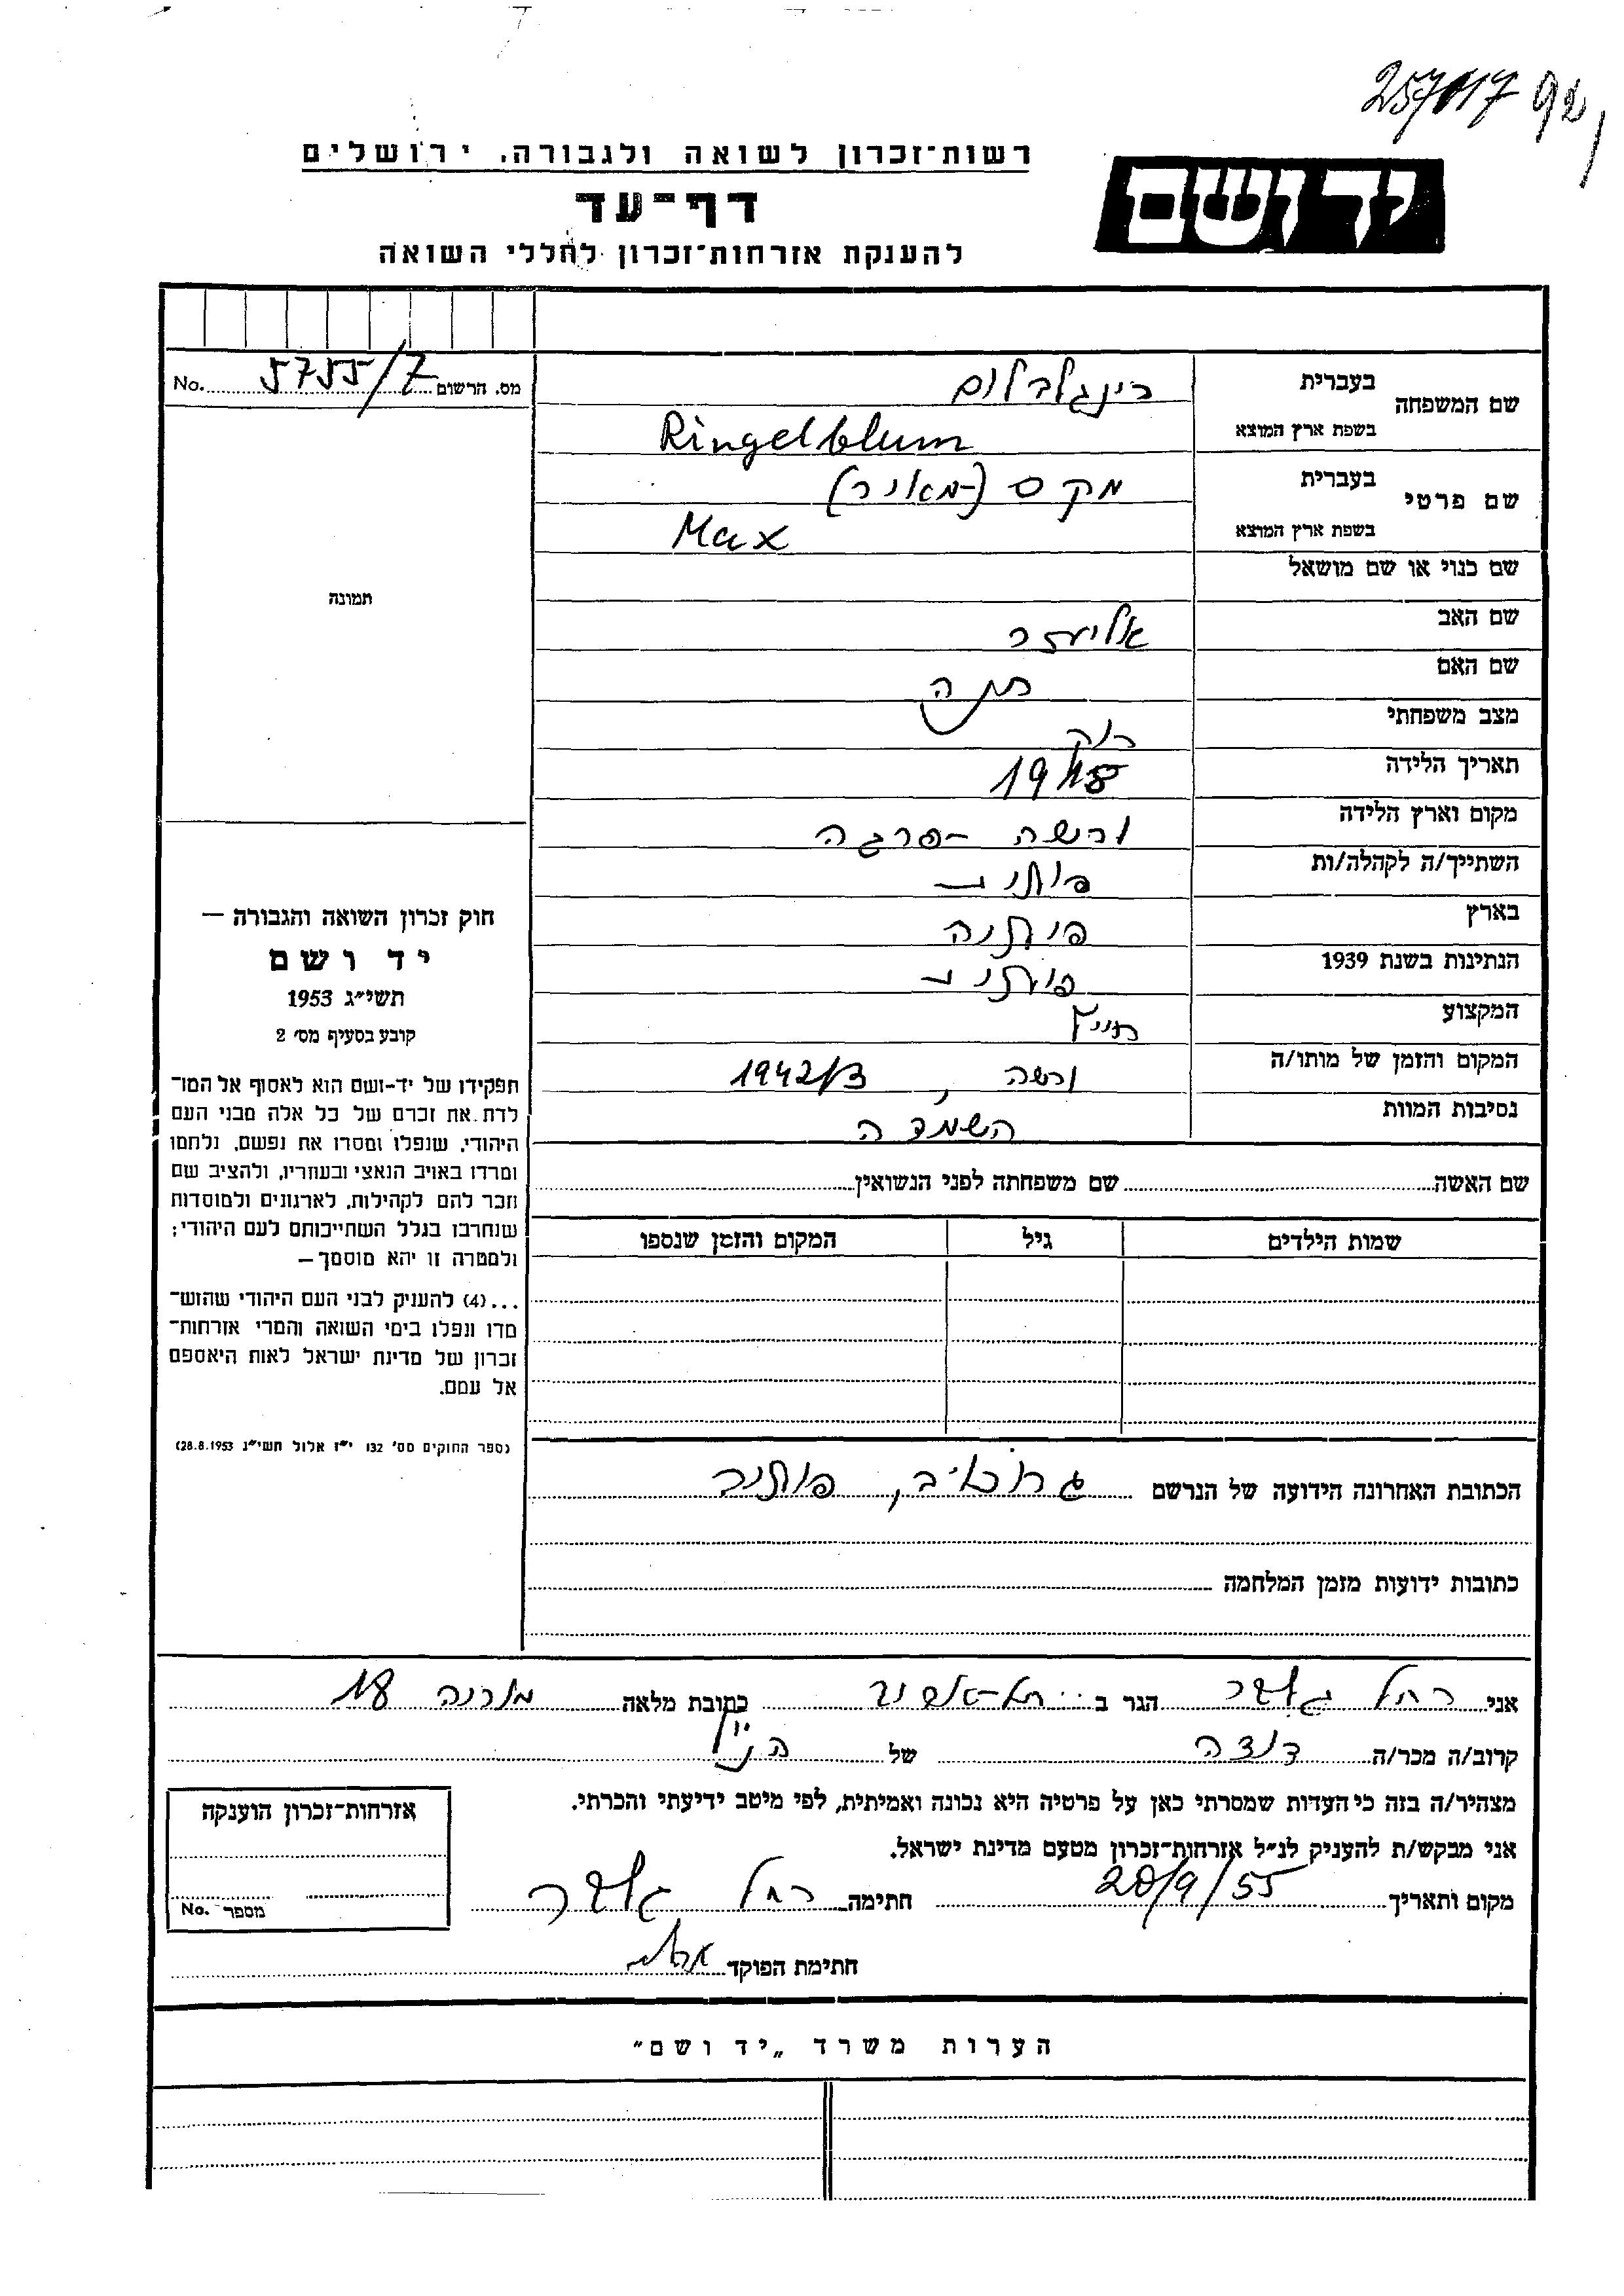 257017 92
רשות־זכרון לשואה ולגבורה, ירושלים
יד ושם
דף־עד
להענקת אזרחות־זכרון לחללי השואה
מס. הרשום 5755/7 No.
שם המשפחה
בעברית רינגלבלום
בשפת ארץ המוצא Ringelblum
שם פרטי
בעברית מקס (מאיר)
בשפת ארץ המוצא Max
שם כנוי או שם מושאל
שם האב אליעזר
שם האם
מצב משפחתי רוק
תאריך הלידה 1918
מקום וארץ הלידה ורשה - פרגה
השתייך/ה לקהלה/ות
בארץ
הנתינות בשנת 1939
המקצוע
המקום והזמן של מותו/ה ורשה, 1942/3
נסיבות המוות השמדה
שם האשה שם משפחתה לפני הנשואין
שמות הילדים גיל המקום והזמן שנספו
תמונה
חוק זכרון השואה והגבורה —
יד ושם
תשי״ג 1953
קובע בסעיף מס׳ 2
תפקידו של יד-ושם הוא לאסוף אל המו־
לדת את זכרם של כל אלה מבני העם
היהודי, שנפלו ומסרו את נפשם, נלחמו
ומרדו באויב הנאצי ובעוזריו, ולהציב שם
וזכר להם לקהילות, לארגונים ולמוסדות
שנחרבו בגלל השתייכותם לעם היהודי;
ולמטרה זו יהא מוסמך —
...(4) להעניק לבני העם היהודי שהוש־
מדו ונפלו בימי השואה והמרי אזרחות־
זכרון של מדינת ישראל לאות היאספם
אל עמם.
(ספר החוקים מס׳ 132 י״ז אלול תשי״ג 28.8.1953)
הכתובת האחרונה הידועה של הנרשם
כתובות ידועות מזמן המלחמה
אני רחל הגר ב כתובת מלאה 18
קרוב/ה מכר/ה דודה של הנ״ל
מצהיר/ה בזה כי העדות שמסרתי כאן על פרטיה היא נכונה ואמיתית, לפי מיטב ידיעתי והכרתי.
אני מבקש/ת להעניק לנ״ל אזרחות־זכרון מטעם מדינת ישראל.
מקום ותאריך 20/9/55 חתימה רחל
חתימת הפוקד
אזרחות־זכרון הוענקה
מספר No.
הערות משרד „יד ושם״